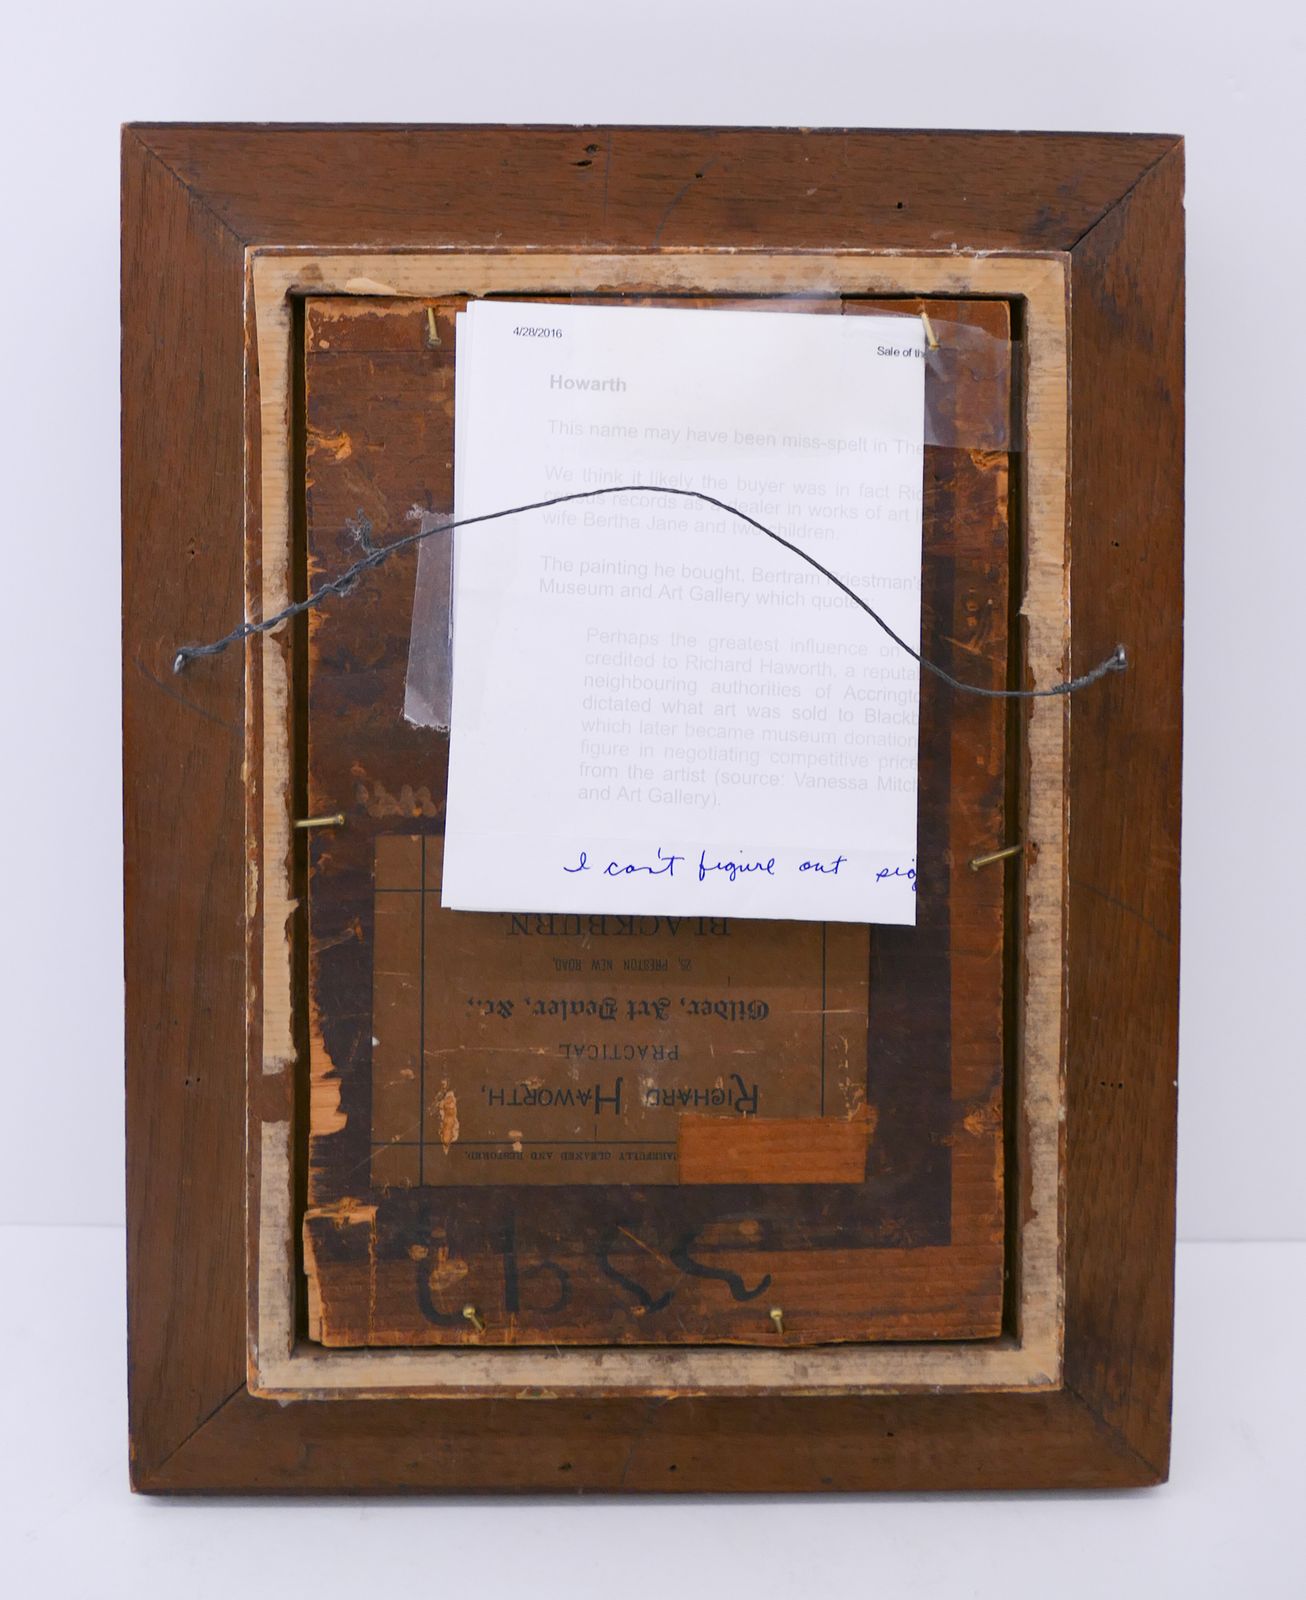 4/28/2016
Sale of th
Howarth
This name may have been miss-spelt in The
We think it likely the buyer was in fact Ric
census records as a dealer in works of art i
wife Bertha Jane and two children.
The painting he bought. Bertram Priestman's
Museum and Art Gallery which quotes:
Perhaps the greatest influence on
credited to Richard Haworth, a reputa
neighbouring authorities of Accringto
dictated what art was sold to Blackb
which later became museum donation
figure in negotiating competitive price
from the artist (source: Vanessa Mitch
and Art Gallery).
I can't figure out sig
CAREFULLY CLEANED AND RESTORED.
RICHARD HAWORTH,
PRACTICAL
Gilder, Art Dealer, &c.,
25, PRESTON NEW ROAD,
BLACKBURN.